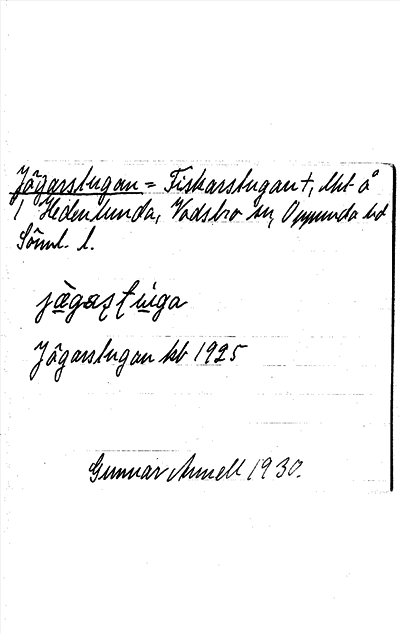 Jägarstugan = Fiskarstugan †, lht å
1 Hedenlunda, Vadsbro sn, Oppunda hd
Söml. l.
Jägarstugan kb 1925
Gunnar Annell 1930.